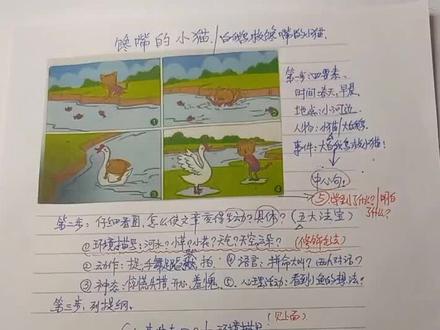 馋嘴的小猫/白鹅救馋嘴的小猫
第一步:四要素
时间:春天,早晨
地点:小河边
人物:小猫/大白鹅
事件:大白鹅救小猫!
① ②
③ ④
中心句。
⑤学到了什么?/明白了什么?
第二步:仔细看图,怎么使文章变得生动?具体?(五大法宝)
①环境描写:河水?小草?小花?天气?天空云朵?(修辞手法)
②动作:捉 拍 ④语言:拼命大叫?两人对话?
③神态:惊慌 开心 羞愧 ⑤心理活动:看到小鱼的想法?
第三步:列提纲。
(见上面)
环境描写